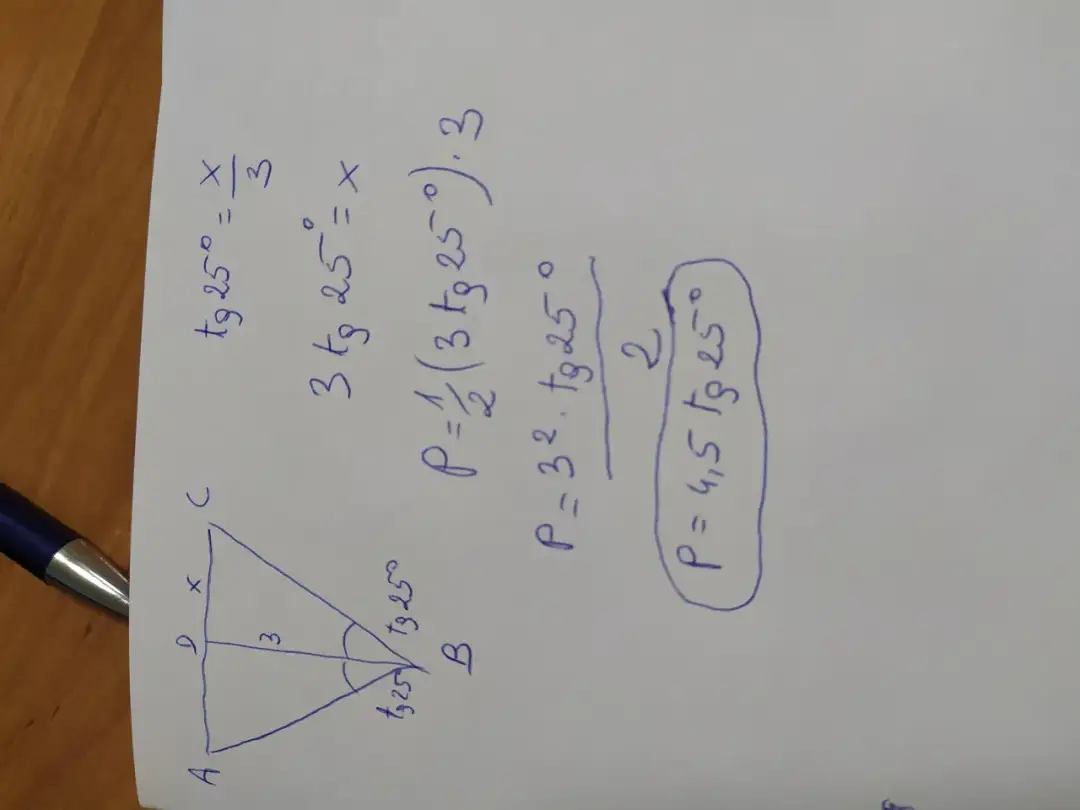 A D x C
3
tg25 tg25°
B
tg 25° = x/3
3 tg 25° = x
P = 1/2 (3 tg 25°) · 3
P = 3² · tg 25°
2
P = 4,5 tg 25°